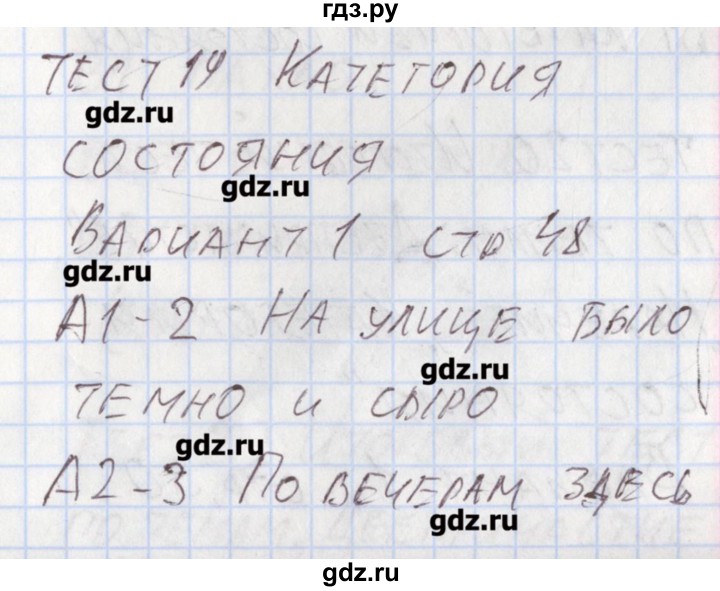 гдз.ру
ТЕСТ 19 КАТЕГОРИЯ
gdz.ru
СОСТОЯНИЯ
gdz.ru
ВАРИАНТ 1 СТР 48
gdz.ru
А1-2 НА УЛИЦЕ БЫЛО
gdz.ru
ТЕМНО И СЫРО
gdz.ru
А2-3 ПО ВЕЧЕРАМ ЗДЕСЬ
gdz.ru
gdz.ru